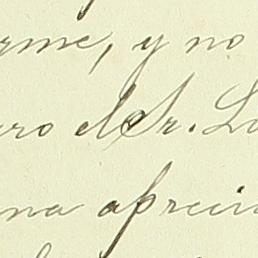 rme, y no
ro el Sr. Lo
na apreci